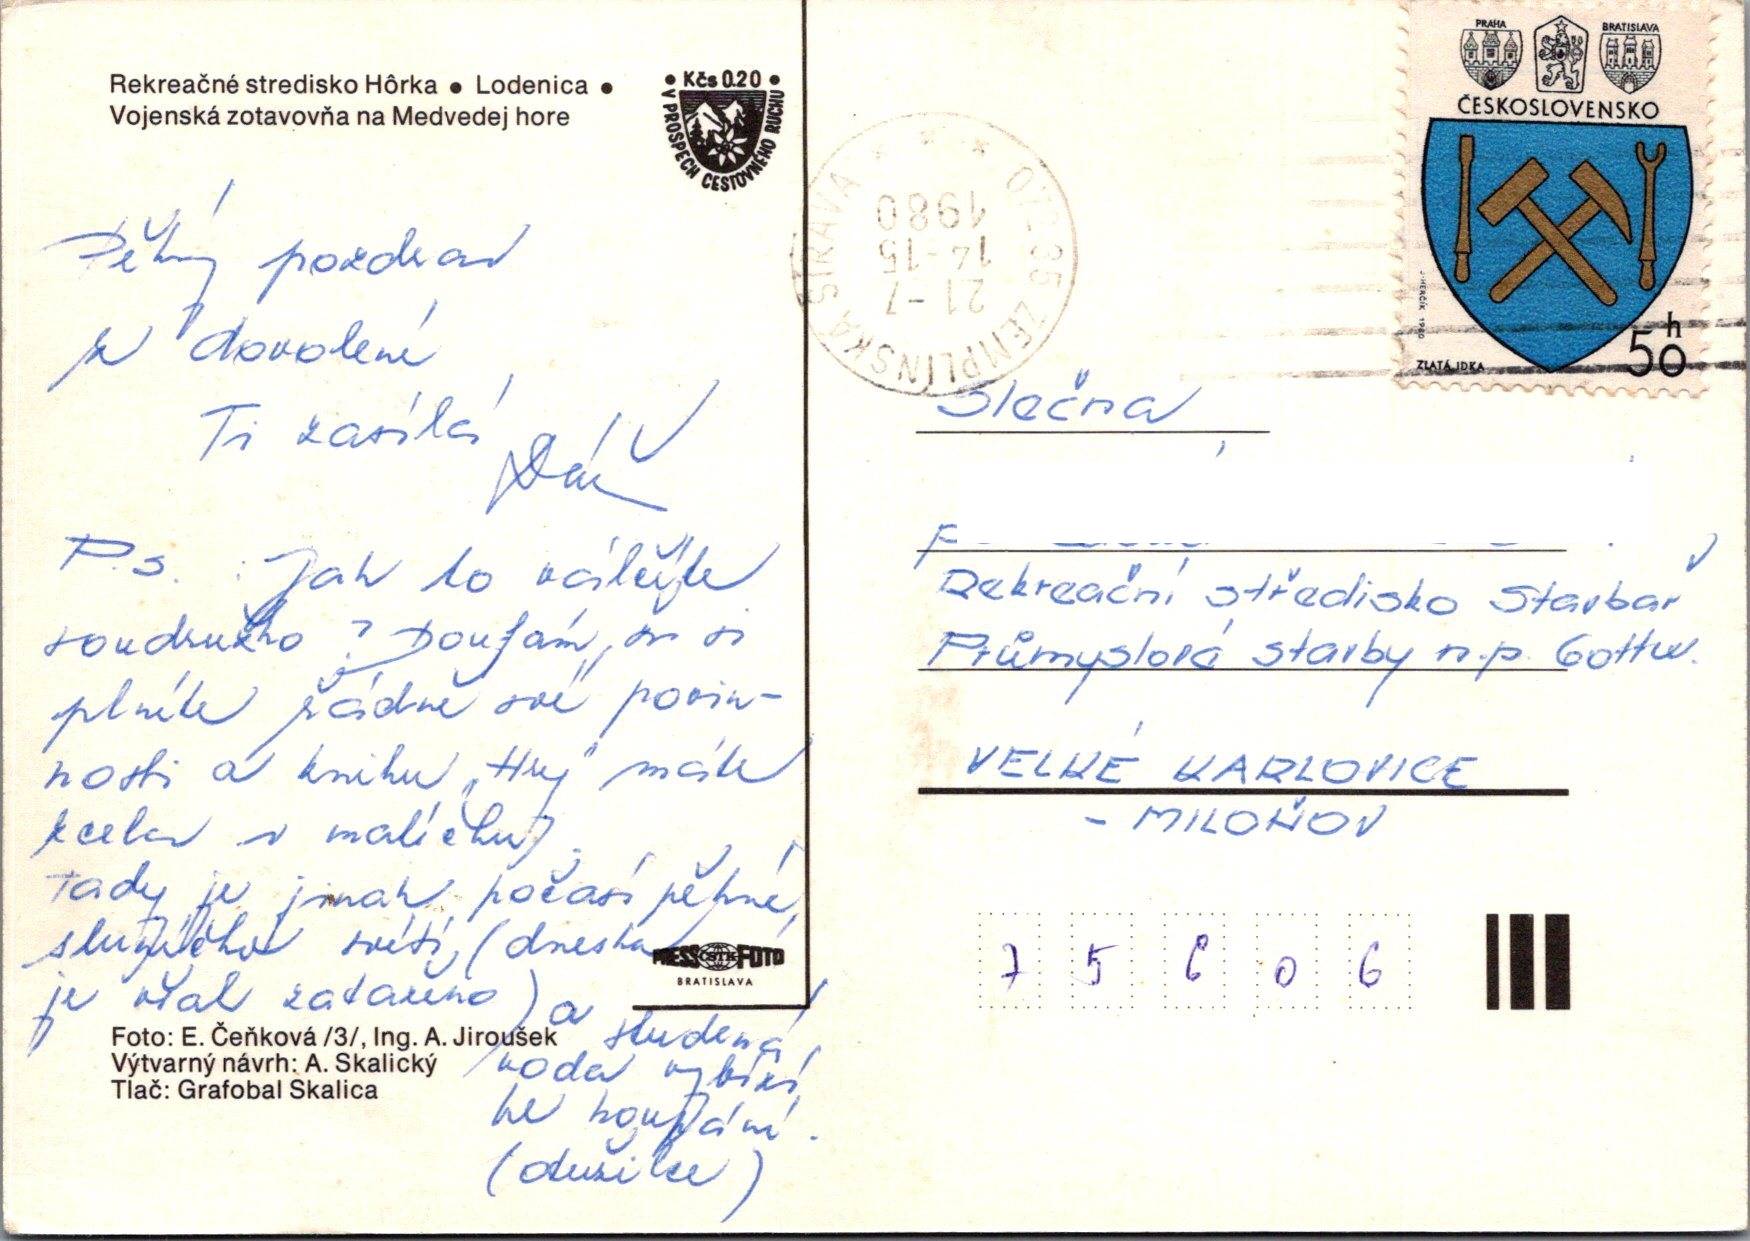 Rekreačné stredisko Hôrka • Lodenica •
Vojenská zotavovňa na Medvedej hore
• Kčs 0.20 •
V PROSPECH CESTOVNÉHO RUCHU
Pěkný pozdrav
z dovolené
Ti zasílá
P.s. Jak to válčíte
soudružko? Doufám, že si
plníte řádně své povin-
nosti a knihu „Hry" máte
zcela v malíčku?
Tady je jinak počasí pěkné,
sluníčko svítí, (dneska
je však zataženo) a studená
voda vybízí
ke koupání.
(dušilce)
PRESSFOTO
ČSTK
BRATISLAVA
Foto: E. Čeňková /3/, Ing. A. Jiroušek
Výtvarný návrh: A. Skalický
Tlač: Grafobal Skalica
ZEMPLÍNSKA ŠÍRAVA
21.-7
14-15
1980
PRAHA
BRATISLAVA
ČESKOSLOVENSKO
J. HERČÍK 1980
ZLATÁ IDKA
50h
Slečna
Rekreační středisko Stavbař
Průmyslová stavby n.p. Gottw.
VELKÉ KARLOVICE
- MILOŇOV
7 5 6 0 6